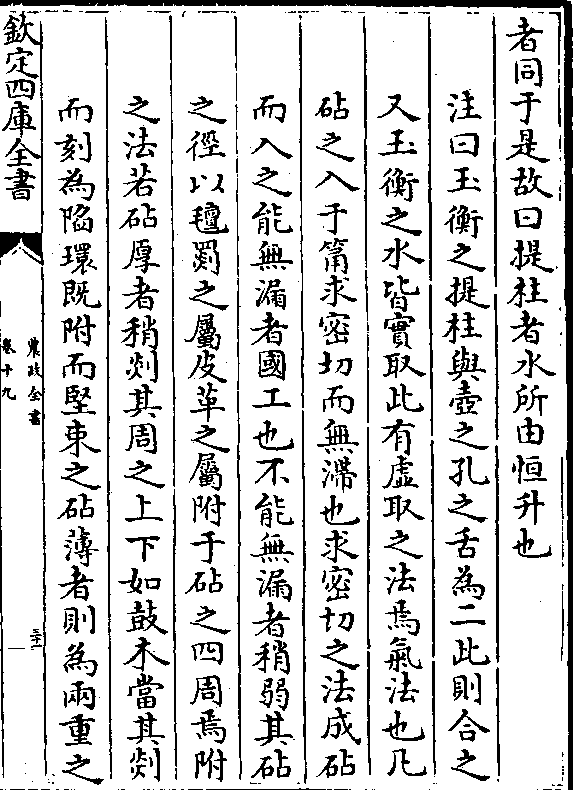 者同于是故曰提柱者水所由恒升也
注曰玉衡之提柱與壺之孔之舌為二此則合之
又玉衡之水皆實取此有虛取之法焉氣法也凡
砧之入于筩求密切而無滯也求密切之法成砧
而入之能無漏者國工也不能無漏者稍弱其砧
之徑以氊罽之屬皮革之屬附于砧之四周焉附
之法若砧厚者稍剡其周之上下如鼓木當其剡
而刻為陷環既附而堅束之砧薄者則為兩重之
欽定四庫全書
農政全書
卷十九